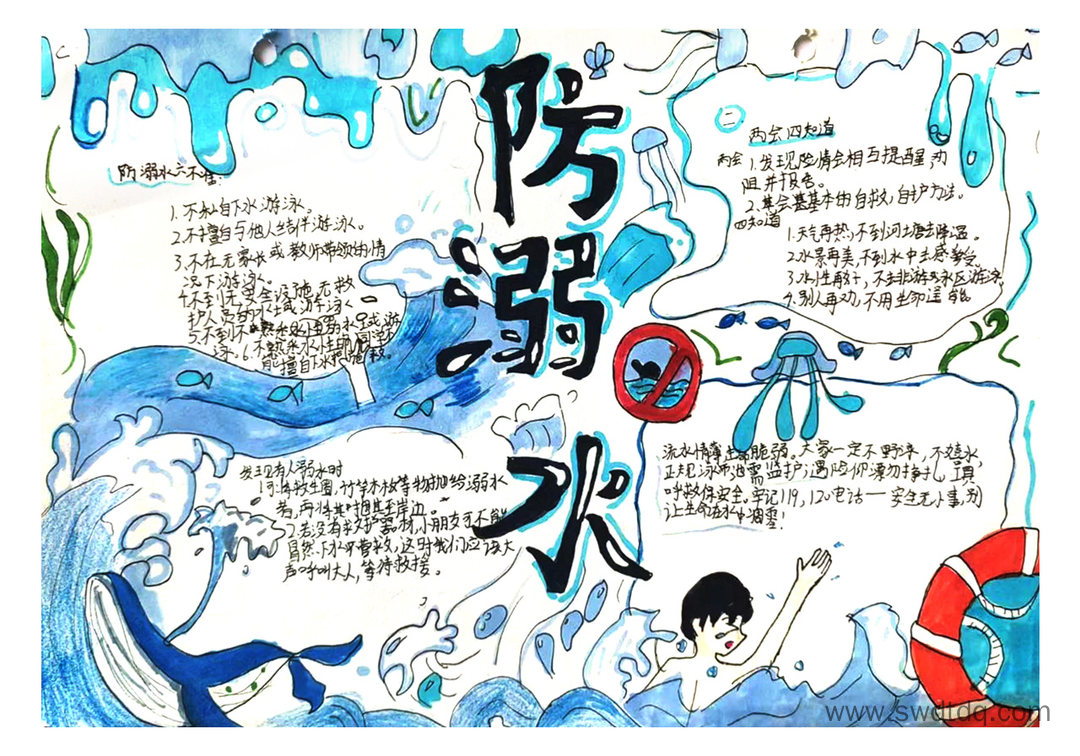 防溺水
防溺水六不准:
1.不私自下水游泳。
2.不擅自与他人结伴游泳。
3.不在无家长或教师带领的情
况下游泳。
4.不到无安全设施、无救
护人员的水域游泳
5.不到不熟悉的水域游
泳。6.不熟悉水性的同学不
擅自下水施救。
二
两会四知道
两会 1.发现险情会相互提醒、劝
阻并报告。
2.其会基基本的自救,自护方法。
四知道
1.天气再热,不到河塘去降温。
2.水景再美,不到水中去感受。
3.水性再好,不去非游泳区游泳
4.别人再劝,不用生命逞能
发现有人溺水时
1.可将救生圈、竹竿木板等物抛给溺水
者,再将其拖至岸边。
2.若没有救护器材,小朋友可不能
冒然下水里营救,这时我们应该大
声呼叫大人,等待救援。
流水情薄生命脆弱。大家一定不野泳,不嬉水,
正规泳池需监护遇险仰漂勿挣扎
呼救保安全,牢记119,120电话一 安全无小事,别
让生命在水中凋零!
www.swdtdq.com